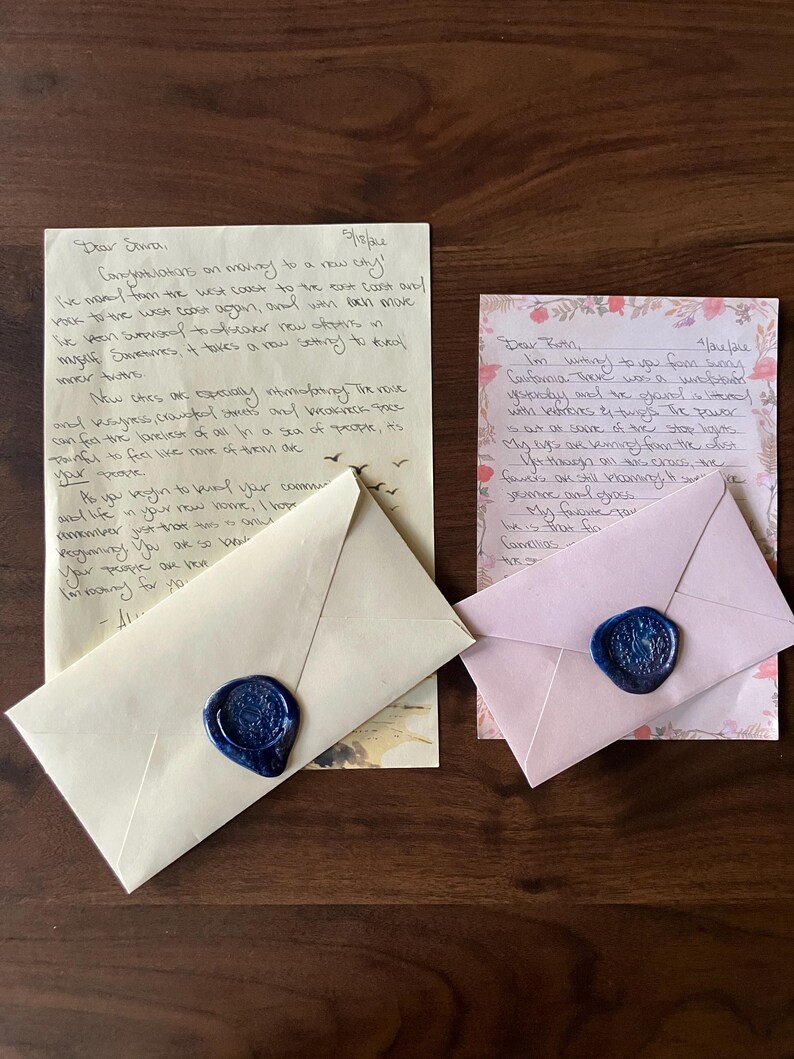 Dear Smra, 5/18/26
Congratulations on moving to a new city!
I've moved from the west coast to the east coast and
back to the west coast again, and with each move
I've been surprised to discover new depths in
myself. Sometimes, it takes a new setting to reveal
inner truths.
New cities are especially intimidating. The noise
and busyness, crowded streets and breakneck pace
can feel the loneliest of all. In a sea of people, it's
painful to feel like none of them are
your people.
As you begin to build your
and life in your new home, I hope
remember just that this is only
beginning. You are so
Your people are here
I'm rooting for
Dear 4/26/26
I'm writing to you from sunny
California. There was a windstorm
yesterday and the ground is littered
with branches & twigs. The power
is out at some of the stop lights.
My eyes are burning from the dust.
Yet through all this chaos, the
flowers are still blooming. It
jasmine and grass.
My favorite
live is that
Camellias
the